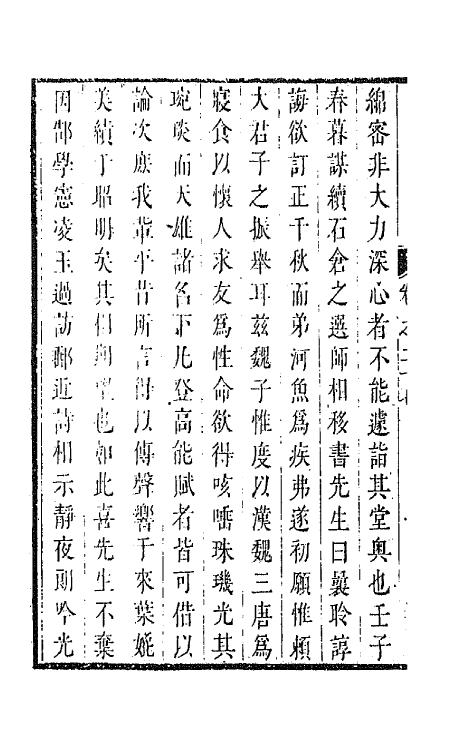 綿密非大力深心者不能遽詣其堂奧也壬子
春暮謀續石倉之選師相移書先生曰曩聆諄
誨欲訂正千秋而弟河魚爲疾弗遂初願惟賴
大君子之振舉耳茲魏子惟度以漢魏三唐爲
寢食以懷人求友爲性命欲得咳唾珠璣光其
琬琰而天雄諸名下凡登高能賦者皆可借以
論次庶我輩平昔所言得以傳聲響于來葉媲
美績于昭明矣其相期望也如此喜先生不棄
因郜學憲凌玉過訪鄴近詩相示靜夜朗吟光